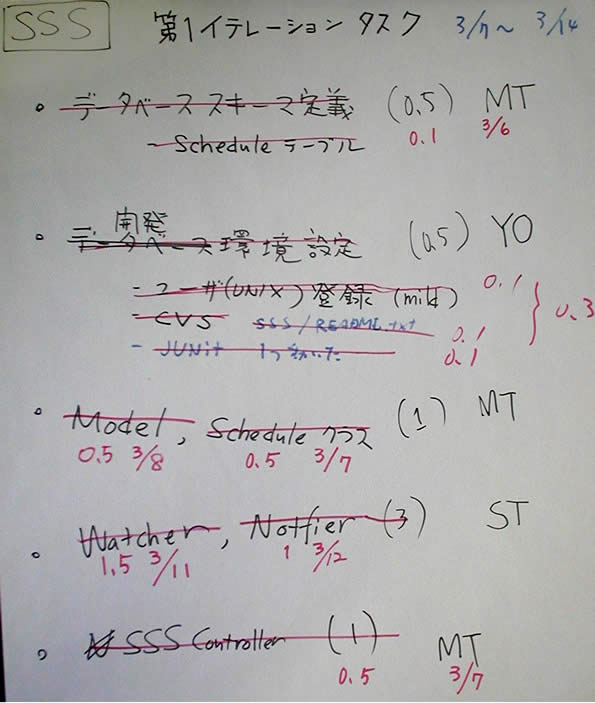 SSS 第1イテレーション タスク 3/7～ 3/14
・データベーススキーマ定義 (0.5) MT
0.1 3/6
- Schedule テーブル
開発
・データベース環境設定 (0.5) YO
- ユーザ(UNIX)登録 (mild) 0.1
} 0.3
- CVS SSS/README.txt
0.1
- JUnit 1つ動いた
0.1
・Model, Schedule クラス (1) MT
0.5 3/8 0.5 3/7
・Watcher, Notfier (3) ST
1.5 3/11 1 3/12
・SSS Controller (1) MT
0.5 3/7